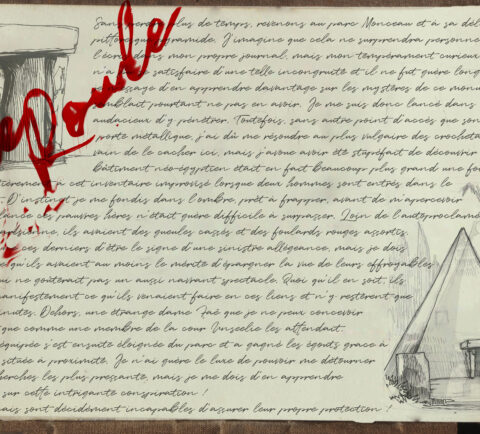 Sans perdre plus de temps, revenons au parc Monceau et à sa dél
pittoresque pyramide. J'imagine que cela ne surprendra personne
l'écri dans mon propre journal, mais mon tempérament curieux
n'a satisfaire d'une telle incongruité et il ne fut guère long
essaye d'en apprendre davantage sur les mystères de ce monu
semblait pourtant ne pas en avoir. Je me suis donc lancé dans
audacieux d'y pénétrer. Toutefois, sans autre point d'accès que son
porte métallique, j'ai dû me résoudre au plus vulgaire des crocheta
vain de le cacher ici, mais j'avoue avoir été stupéfait de découvrir
bâtiment néo-égyptien était en fait beaucoup plus grand une fo
à cet inventaire improvisé lorsque deux hommes sont entrés dans le
D'instinct je me fondis dans l'ombre, prêt à frapper, avant de m'apercevoir
ces pauvres hères n'était guère difficile à surpasser. Loin de l'autoproclamé
parisienne, ils avaient des gueules cassés et des foulards rouges assortis
ces derniers d'être le signe d'une sinistre allégeance, mais je dois
qu'ils avaient au moins le mérite d'épargner la vue de leurs effroyables
ui ne goûterait pas un aussi navrant spectacle. Quoi qu'il en soit, ils
manifestement ce qu'ils venaient faire en ces lieux et n'y restèrent que
minutes. Dehors, une étrange dame Faë que je ne peux concevoir
que comme une membre de la cour Unseelie les attendait.
équipée s'est ensuite éloignée du parc et a gagné les égouts grâce à
située à proximité. Je n'ai guère le luxe de pouvoir me détourner
herches les plus pressante, mais je me dois d'en apprendre
sur cette intrigante conspiration !
ais sont décidément incapables d'assurer leur propre protection !
Poule